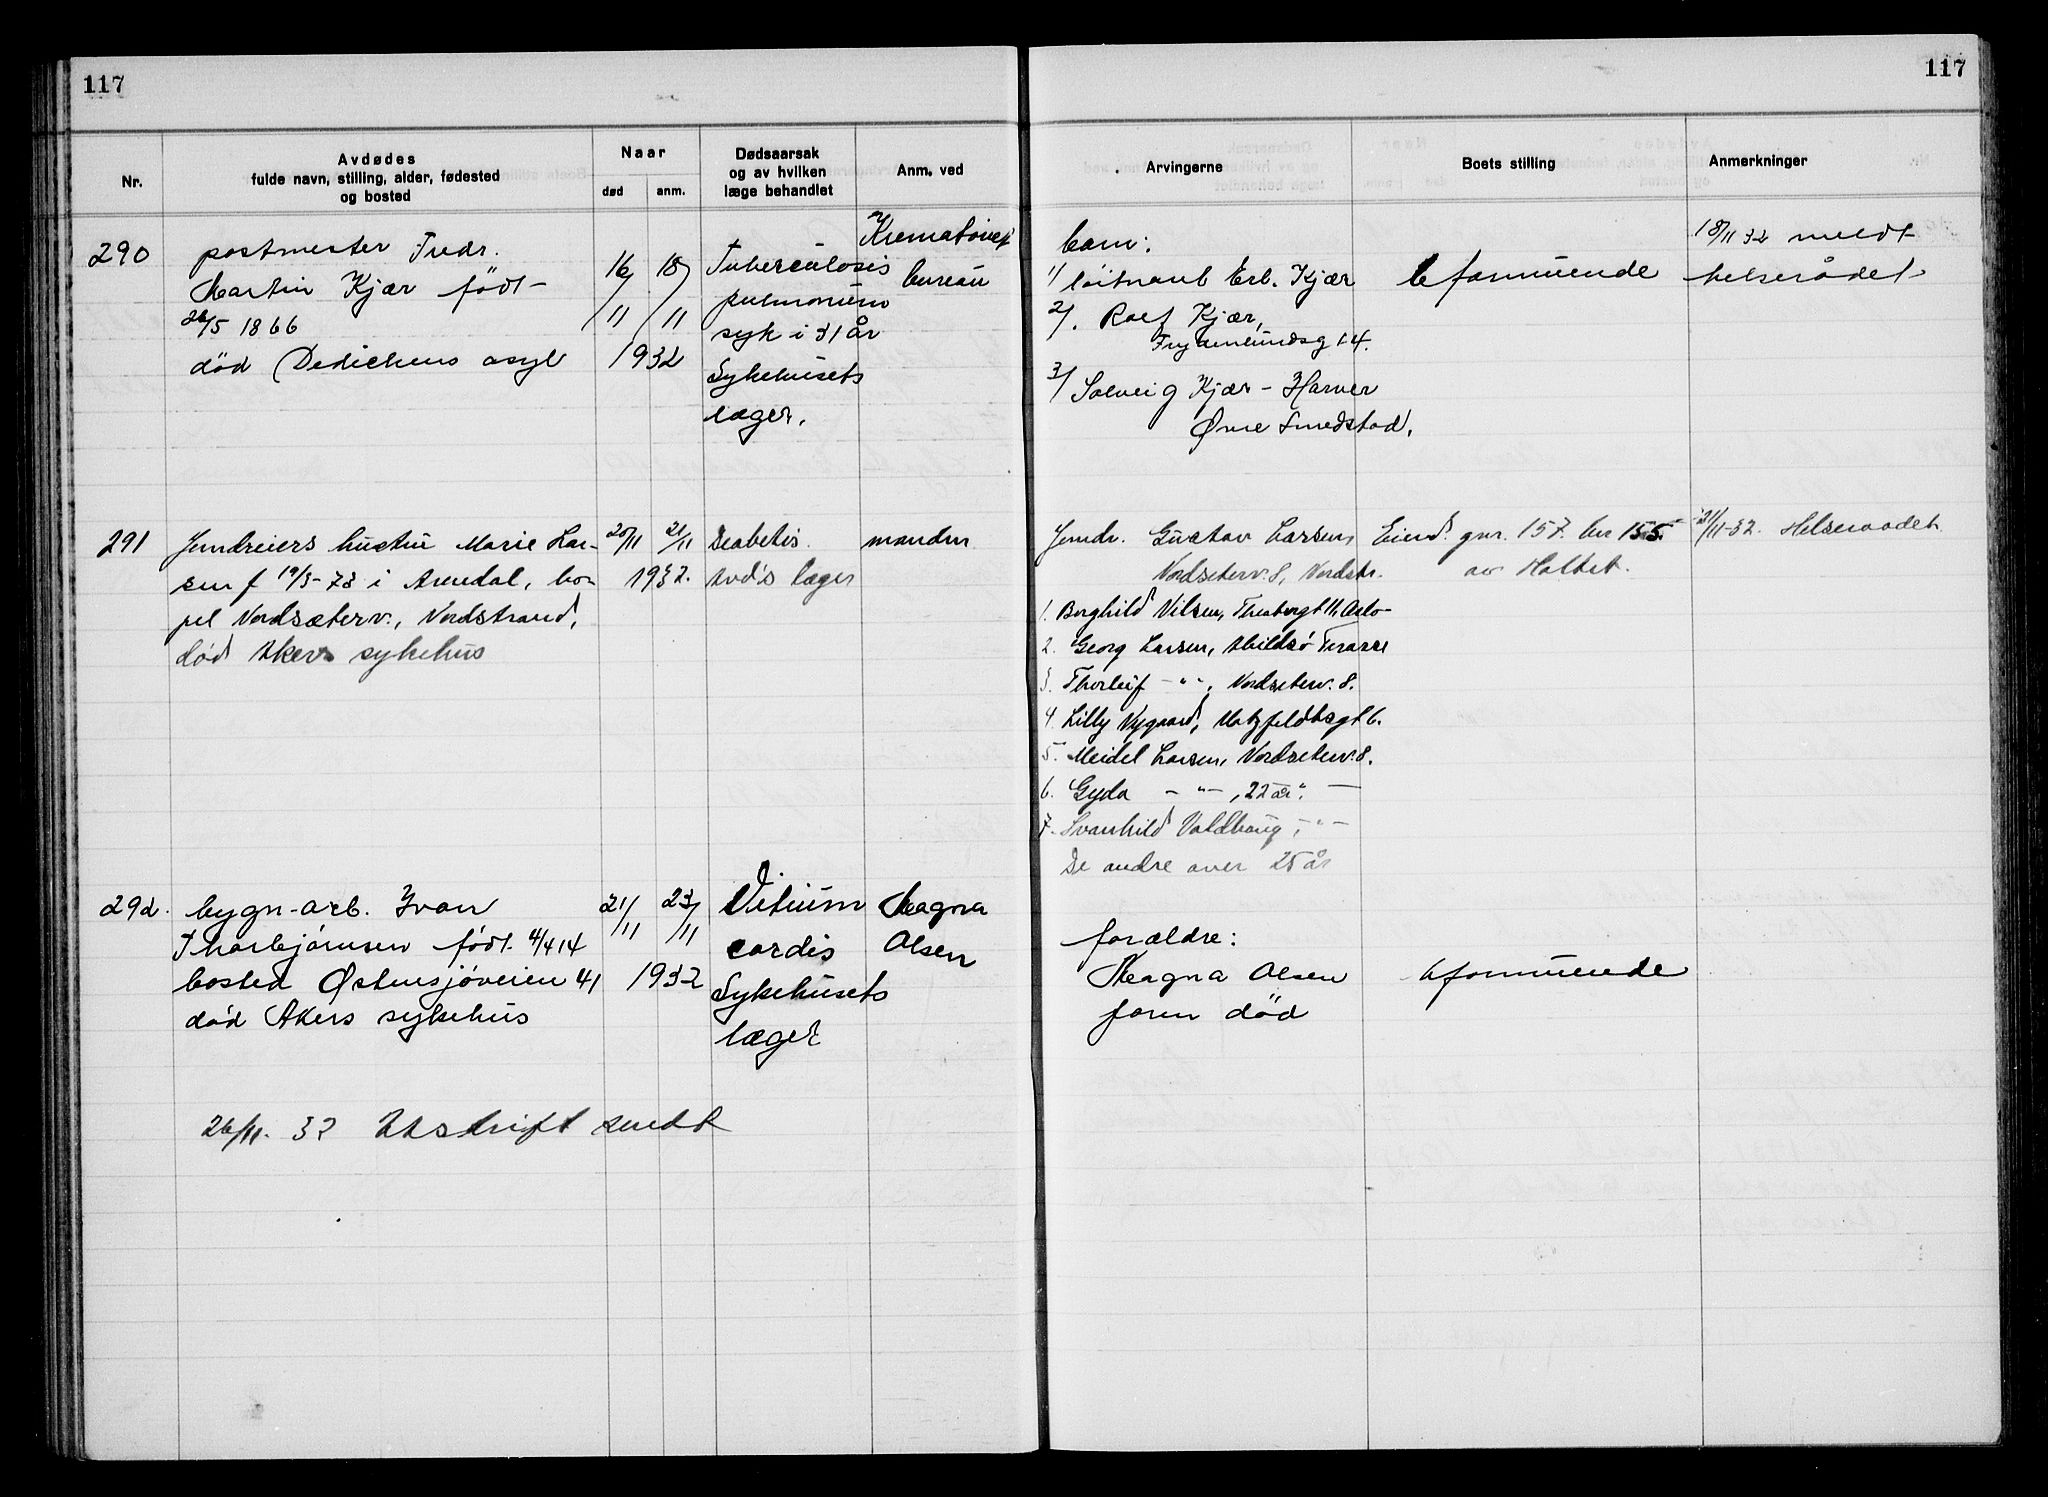 117
117
Nr.
Avdødes
fulde navn, stilling, alder, fødested
og bosted
Naar
død
anm.
Dødsaarsak
og av hvilken
læge behandlet
Anm. ved
Arvingerne
Boets stilling
Anmerkninger
290
postmester Fredr.
Martin Kjær født
26/5 1866
død Dedichens asyl
16/11 18/11
1932
Tuberculosis
pulmonum
syk i 31 år
Sykehusets
læger.
Krematoriets
bureau
barn:
1/ løitnant Erl. Kjær
2/. Rolf Kjær,
14.
3/ Solveig Kjær - Harver
Øvre Smedstad.
formuende
18/11 32 meldt
helserådet
291
hustru Marie Lar-
sen f 19/3-73 i Arendal, bo-
pel Nordsæterv., Nordstrand,
død Akers sykehus
20/11 21/11
1932.
Deabetis.
Avd's læger
manden
Gustav Larsen,
Nordseterv. 8, Nordstr.
1. Borghild Nilsen, Oslo
2. Georg Larsen, Abildsø Terasse
3. Thorleif - " -, Nordseterv. 8.
4. Lilly Nygaard, 6.
5. Meidel Larsen, Nordseterv. 8.
6. Gyda - " -, 22 år " -
7. Svanhild Valdhaug, - " -
De andre over 25 år
Eiend. gnr. 157. bnr 155
av Holtet.
21/11-32. Helseraadet
292.
bygn-arb. Ivan
Thorbjörnsen født 4/4 14
bosted Østensjøveien 41
død Akers sykehus
21/11 23/11
1932
Vitium
cordis
Sykehusets
læger
Magna
Olsen
forældre:
Magna Olsen
faren død
uformuende
26/11. 32 Utskrift sendt